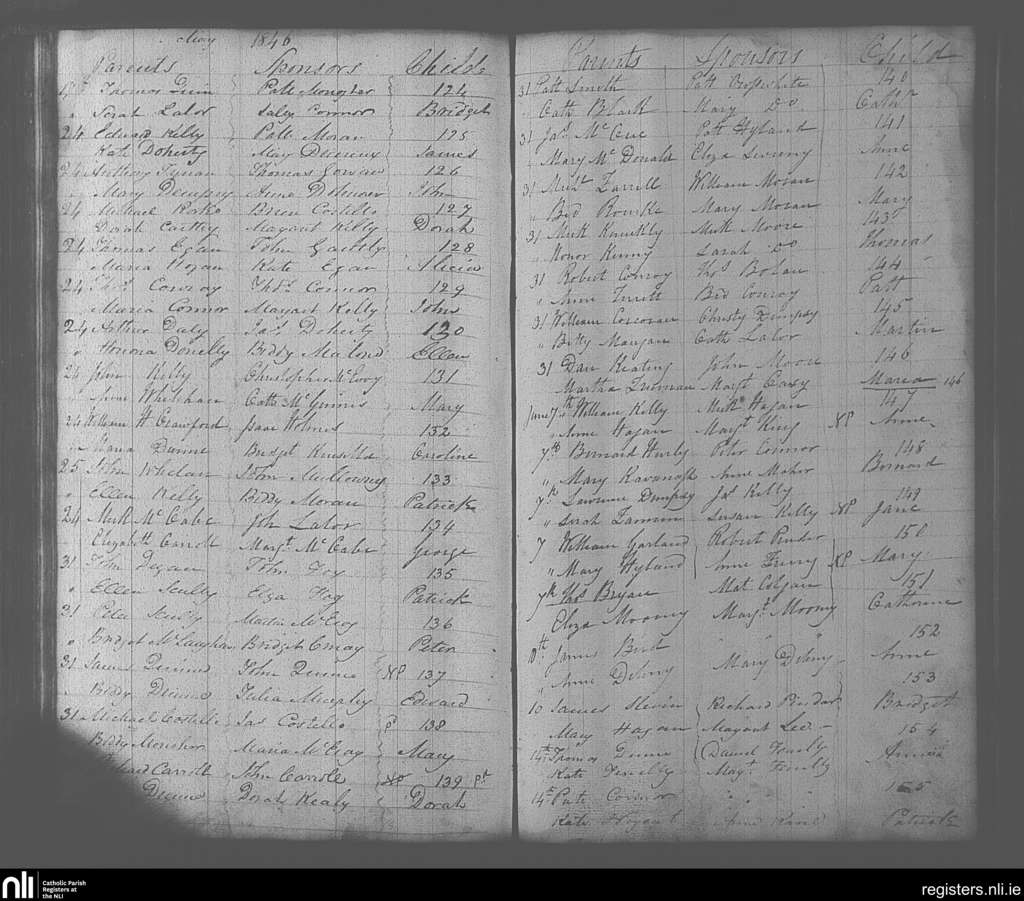 May 1846
Parents Sponsors Child
Thomas Quin Patt Mongher 124
" Sarah Lalor Sally Connor Bridget
24 Edward Kelly Patt Moran 125
Kate Doherty May Deereux James
24 Anthony Tynan Thomas 126
" Mary Dempsey Anne Delmaer John
24 Michael Rake Brien Costello 127
Dorah Margart Kelly Dorah
24 Thomas Egan John 128
Maria Hogan Kate Egan Alicia
24 Thos Conroy Thos Connor 129
Maria Connor Margart Kelly John
24 Arthur Daly Jas Doherty 130
" Honora Donelly Biddy Malone Ellen
24 John Kelly Christopher McEvoy 131
" Anne Whelehan Cath McGuinis Mary
24 William H Crawford Isaac Holmes 132
" Maria Dunne Bridget Kinsella Caroline
25 John Whelan John Mullowny 133
" Ellen Kelly Biddy Moran Patrick
24 Mick McCabe Joh Lalor 134
Elizabeth Carroll Margt McCabe George
31 John Degan John Foy 135
" Ellen Scully Eliza Foy Patrick
31 Peter Scully Martin McEvoy 136
" Bridget McLaughan Bridget Peter
31 James Dunne John Dunne NP 137
" Biddy Dunne Julia Murphy Edward
31 Michael Costello Jas Costello P 138
Biddy Maria McEvoy Mary
Carroll John Carroll NP 139 Pt
Dunne Dorah Kealy Dorah
Parents Sponsors Child
31 Patt Smith Patt 140
" Cath Black Mary Do Cathr
31 Jas McCue Patt Hyland 141
Mary McDonald Eliza Anne
31 Michl Farrell William Moran 142
" Bid Rourke Mary Moran Mary
31 Mick Mick Moore 143
" Honor Kinny Sarah Do Thomas
31 Robert Conroy Thos Bolan 144
" Anne Bid Conroy Patt
31 William Corcoran Christy Dempsy 145
" Betty Mangan Cath Lalor Martin
31 Dan Keating John Moore 146
Martha Margt Casey Maria 146
June 7th William Kelly Mick Hagan 147
" Anne Hagan Margt King NP Anne
7th Bernard Hurly Peter Connor 148
" Mary Kavangh Anne Maher Bernard
7th Lawrence Dempsy Jas Kelly 149
" Sarah Susan Kelly NP Jane
7 William Garland Robert Pinder 150
" Mary Hyland Anne NP Mary
7th Thos Bryan Mat Colgan 151
Eliza Moony Margt Moony Catherine
10th James Bird " " " 152
" Anne Delany Mary Delany Anne
10 James Slevin Richard Pindar 153
Mary Hagan Margart Lee Bridget
14th Thomas Dunne Daniel 154
Kate Margt
14th Patt Connor " " " 155
Kate Anne Kane Patrick
nli
Catholic Parish
Registers at
the NLI
registers.nli.ie